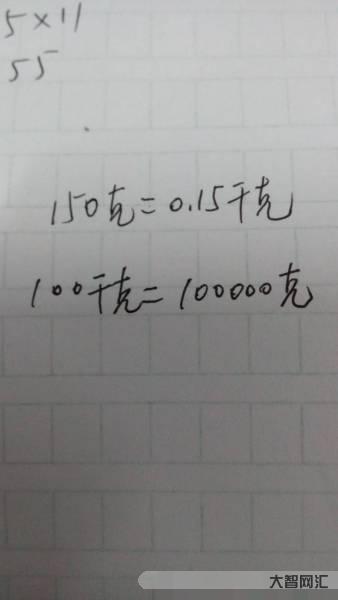 5×11
55
150克=0.15千克
100千克=100000克
大智网汇